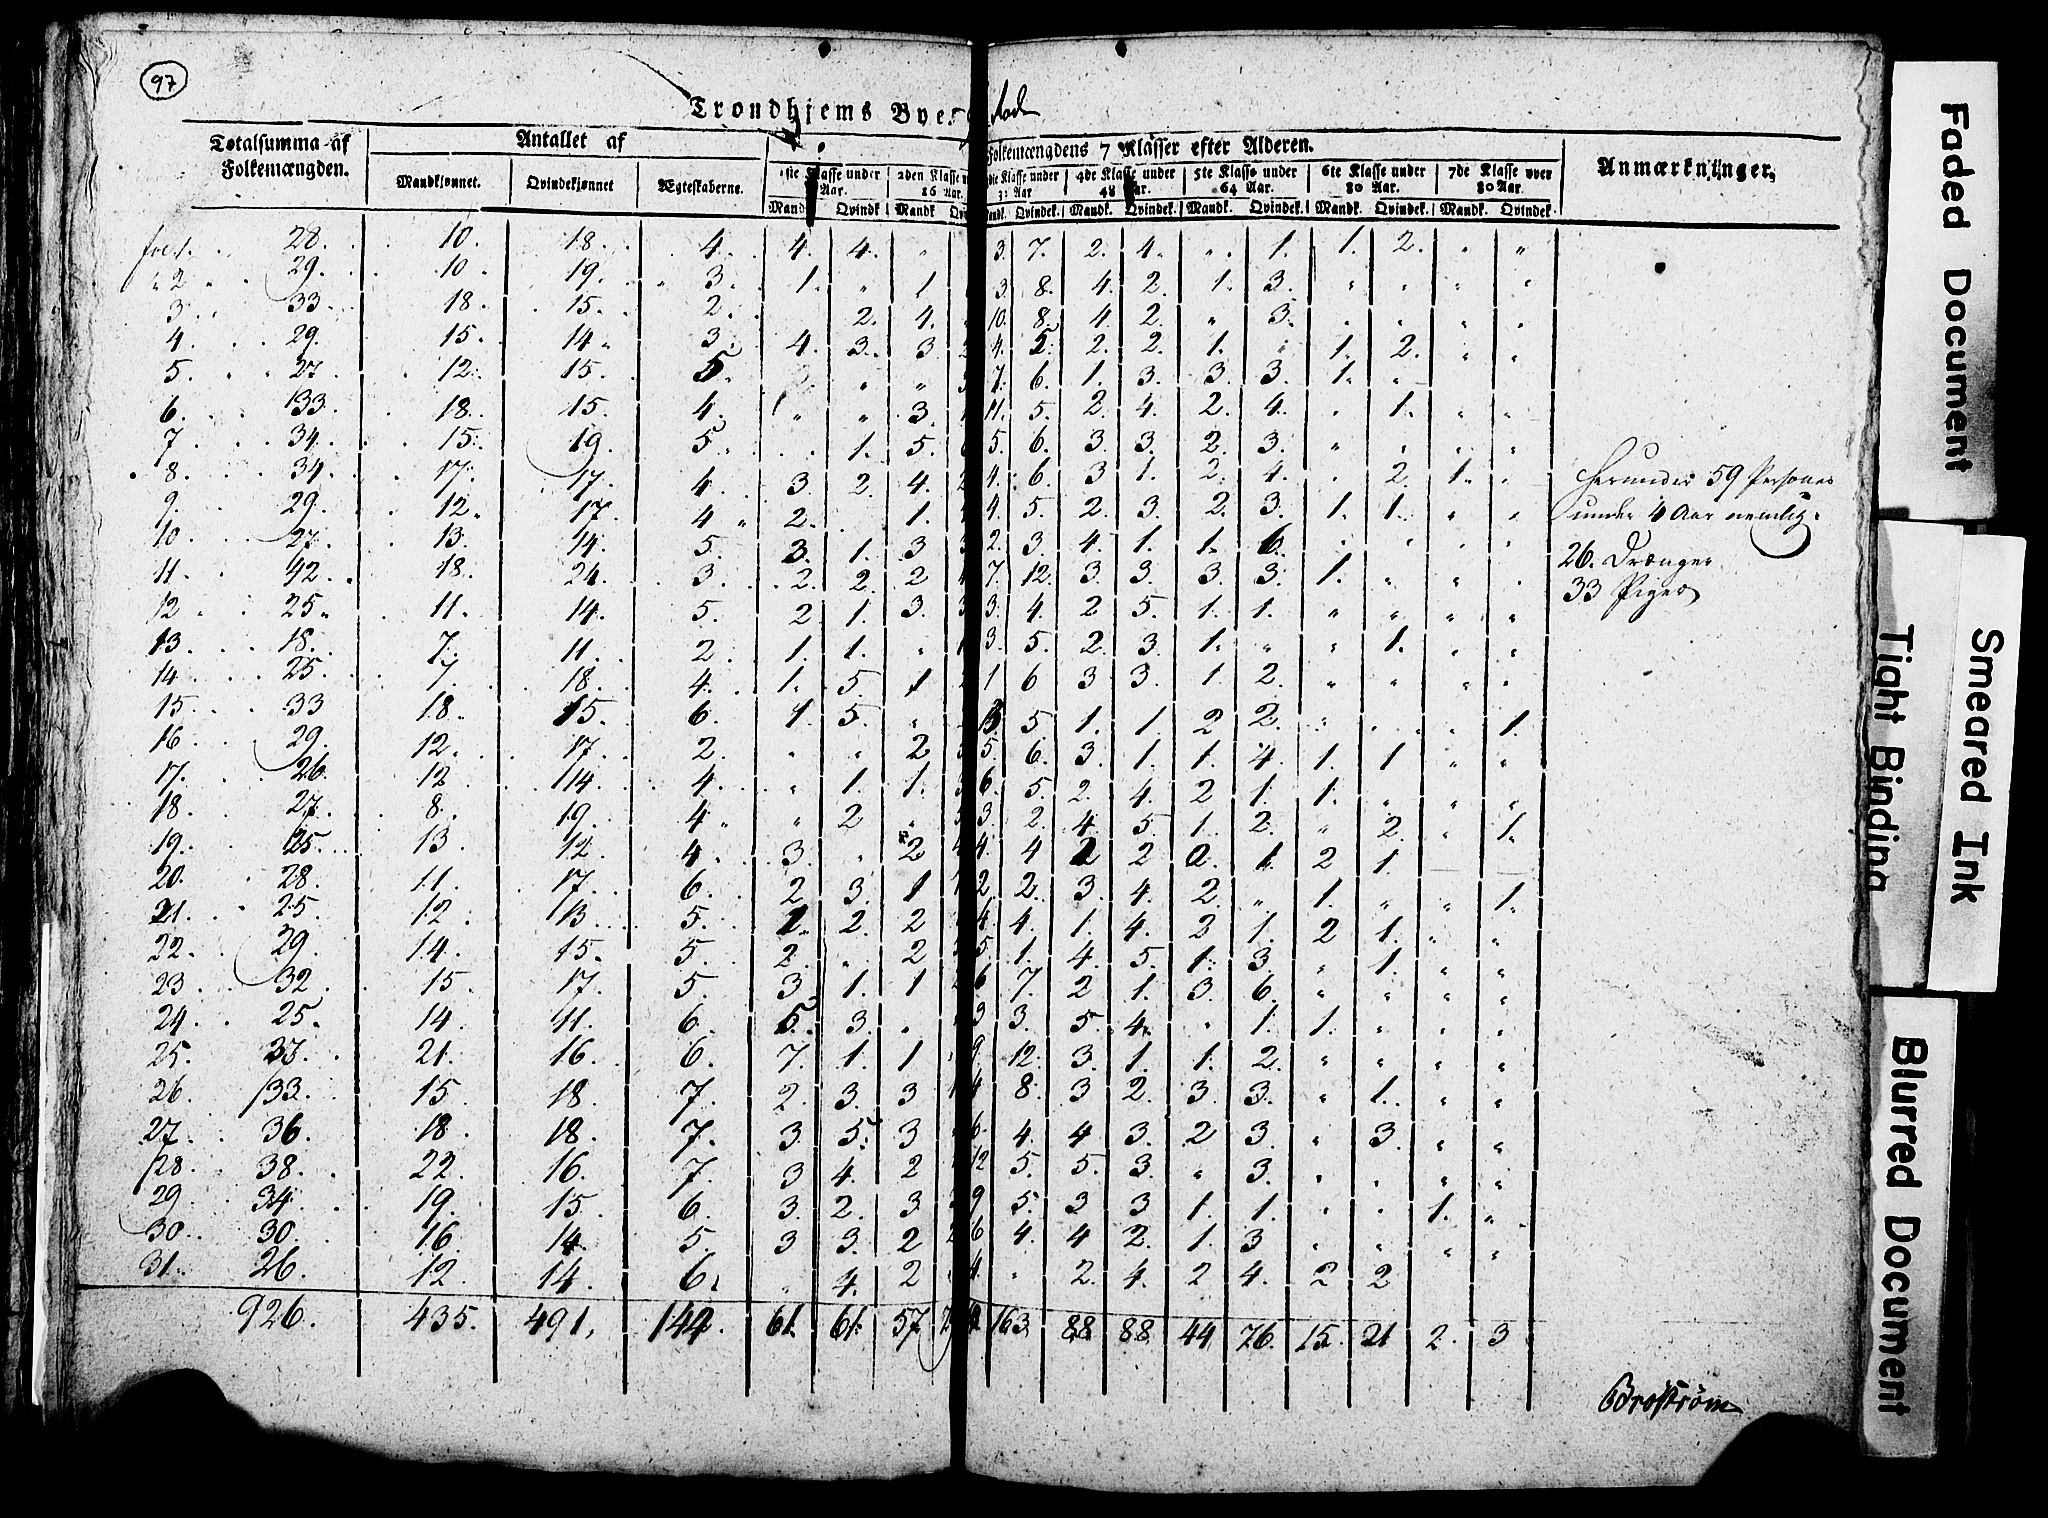 97
Trondhjems Byes
Totalsumma af Folkemængden. Antallet af Folkemængdens 7 Klasser efter Alderen. Anmærkninger.
Mandkjønnet. Qvindekjønnet Ægteskaberne. 1ste Klasse under Aar. 2den Klasse 16 Aar. Klasse under 32 Aar 4de Klasse under 48 Aar. 5te Klasse under 64 Aar. 6te Klasse under 80 Aar. 7de Klasse over 80 Aar.
Mandk Qvindk Mandk Mandk. Qvindek. Mandk. Qvindek. Mandk. Qvindek. Mandk. Qvindek. Mandk. Qvindek.
fol. 1. 28. 10. 18. 4. 4. 4. " 3. 7. 2. 4. " 1. 1. 2. " "
" 2 29. 10. 19. 3. 1. " 1 3. 8. 4. 2. 1. 3. " " " "
3. 33 18. 15. 2. 2. 4. 10. 8. 4. 2. " 3. " " " "
4. 29. 15. 14. 3. 4. 3. 3 4. 5. 2. 2. 1. " 1. 2. " "
5. 27. 12. 15. 5. " " 7. 6. 1. 3. 3. 3. 1. "
6. 33. 18. 15. 4. " " 3. 11. 5. 2. 4. 2. 4. " 1. " "
7. 34. 15. 19. 5. 1. 5. 5. 6. 3 3. 2. 3. " " " "
8. 34. 17. 17. 4. 3. 2. 4. 4. 6. 3 1. 2. 4. " 2. 1. "
9. 29. 12. 17. 4 2. 1. 4. 5. 2. 3. 2. 3. 1. 1. " "
10. 27. 13. 14. 5. 3. 1. 3 2. 3. 4. 1. 1. 6. " " " "
11. 42. 18. 24. 3. 2. 2. 2 7. 12. 3. 3. 3. 3. 1. " " "
12 25 11. 14. 5. 2. 1. 3. 3. 4. 2 5. 1. 1. " " " "
13. 18. 7. 11. 2. 1. 1. " 3. 5. 2. 3. 1. " " 1. " "
14. 25. 7. 18. 4. 1. 5. 1 1 6 3 3. 1. 2. " " " "
15. 33 18. 15. 6. 1. 5. " 13. 5 1. 1. 2 2. " " " 1.
16 29. 12. 17. 2. " " 2 5. 6. 3. 1. 1. 4. 1. 1 " "
17. 26. 12 14. 4. " 1. 1. 6. 5. 2. 4. 2 1. 1. " " "
18. 27. 8. 19. 4 " 2 " 3. 2. 4. 5. 1. 2. " 2. " 1.
19. 25. 13. 12. 4. 3. " 2 4. 4 2 2 2. 1. 2 1.
20. 28. 11. 17. 6. 2 3. 1 2 2. 3. 4. 2. " 1. " " 1.
21. 25. 12. 13. 5. 2. 2. 2 4. 4. 1. 4. 2 1. 2 1. " "
22. 29. 14. 15. 5. 2. " 2 5. 1. 4. 5. 1. 3. " 1. " "
23. 32. 15. 17. 5. 3 1. 1 6 7. 2 1. 3. 6. " " " "
24. 25. 14. 11. 6. 5. 3. " 3 3. 5. 4. " 1. 1. " " "
25. 37. 21. 16. 6. 7. 1. 1 9. 12. 3. 1. 1. 2. " " " "
26. 33. 15. 18. 7. 2. 3. 3 4 8. 3 2. 3. 3. " 1. " "
27. 36. 18. 18. 7. 3. 5. 3 6. 4. 4 3. 2 3. " 3. " "
28. 38. 22. 16. 7. 3 4. 2 12 5. 5. 3. " 3. " " " "
29 34. 19. 15. 6. 3. 2. 3. 9 5. 3 3 1. 1. " " 1. "
30. 30. 16. 14. 5. 3 3. 2 6 4. 4 2. 1. 3 " " " "
31. 26. 12. 14. 6. " 4. 2 4. " 2. 4. 2 4. 2 2
926. 435. 491. 144. 61. 61. 57 163. 88. 88. 44 76. 15. 21 2. 3
Herunder 59 Personer
under 4 Aar nemlig.
26. Drænger
33 Piger
Broström
Faded Document
Tight Binding
Smeared Ink
Blurred Document